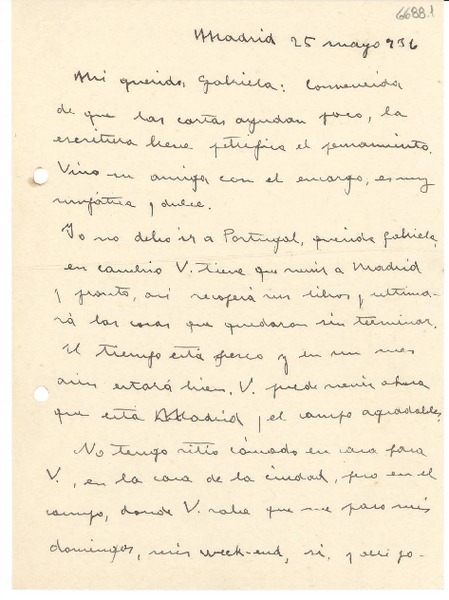 6688.1
Madrid 25 mayo 936
Mi querida Gabriela: Convencida
de que las cartas ayudan poco, la
escritura breve petrifica el pensamiento.
Vino su amiga con el encargo, es muy
simpática y dulce.
Yo no debo ir a Portugal, querida Gabriela,
en cambio V. tiene que venir a Madrid
y pronto, así recogerá sus libros y ultima-
rá las cosas que quedaron sin terminar.
El tiempo está fresco y en un mes
aún estará bien. V. puede venir ahora
que está Madrid y el campo agradables.
No tengo sitio cómodo en casa para
V., en la casa de la ciudad, pero en el
campo, donde V. sabe que me paso mis
domingos, mis week-end, si, y allí po-